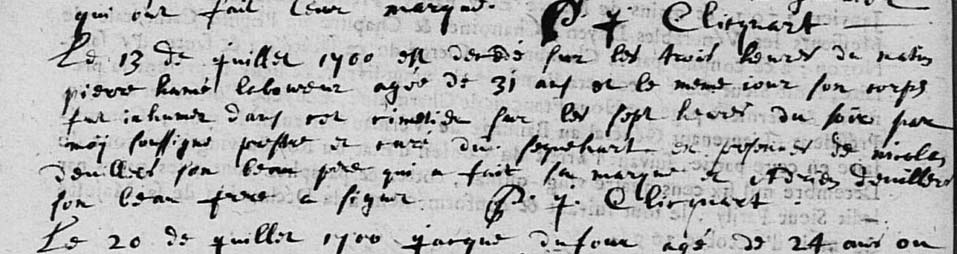 qui ont fait leur marque. P. q Clicquart
Le 13 de juillet 1700 est decedé sur les trois heures du matin
pierre hamé laboureur agée de 31 ans et le meme jour son corps
fut inhumer dans cet cimetier sur les sept heures du soir par
moÿ soussigné prestre et curé du sequehart en presence de nicolas
deuillers son beau pere qui a fait sa marque et Adrien deuillers
son beau frere a signer P. q. Clicquart
Le 20 de juillet 1700 jacque dufour agé de 24 ans ou